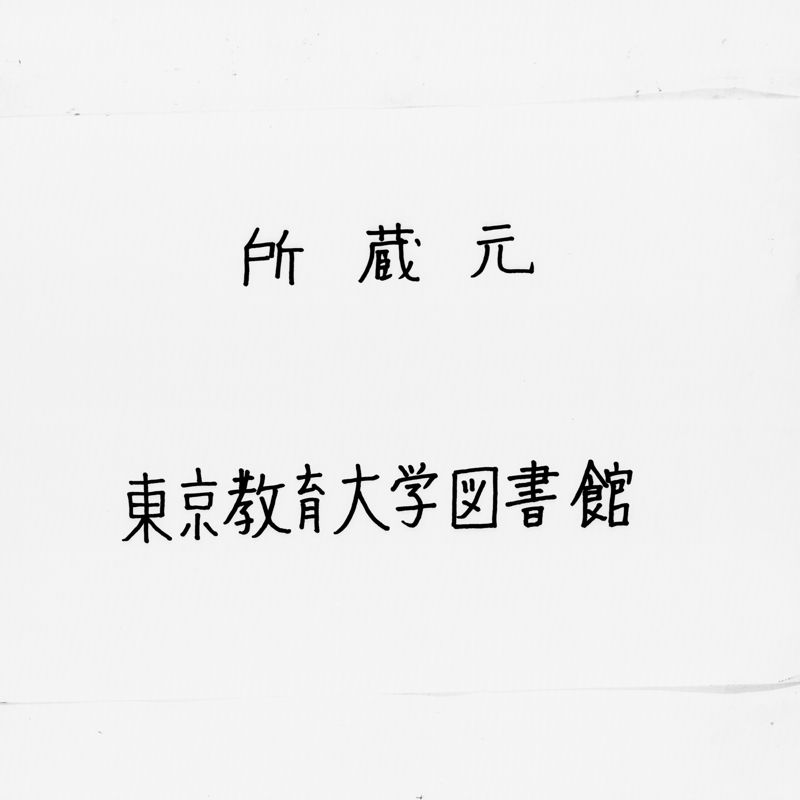 所蔵元
東京教育大学図書館